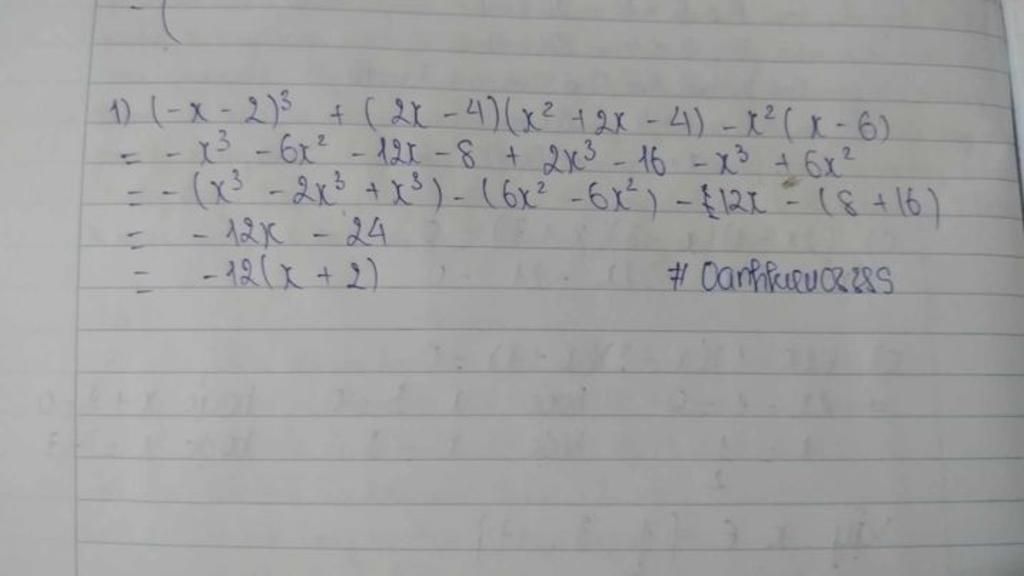 1) (-x - 2)³ + (2x - 4)(x² + 2x - 4) - x²(x - 6)
= - x³ - 6x² - 12x - 8 + 2x³ - 16 - x³ + 6x²
= - (x³ - 2x³ + x³) - (6x² - 6x²) - 12x - (8 + 16)
= - 12x - 24
= - 12(x + 2)